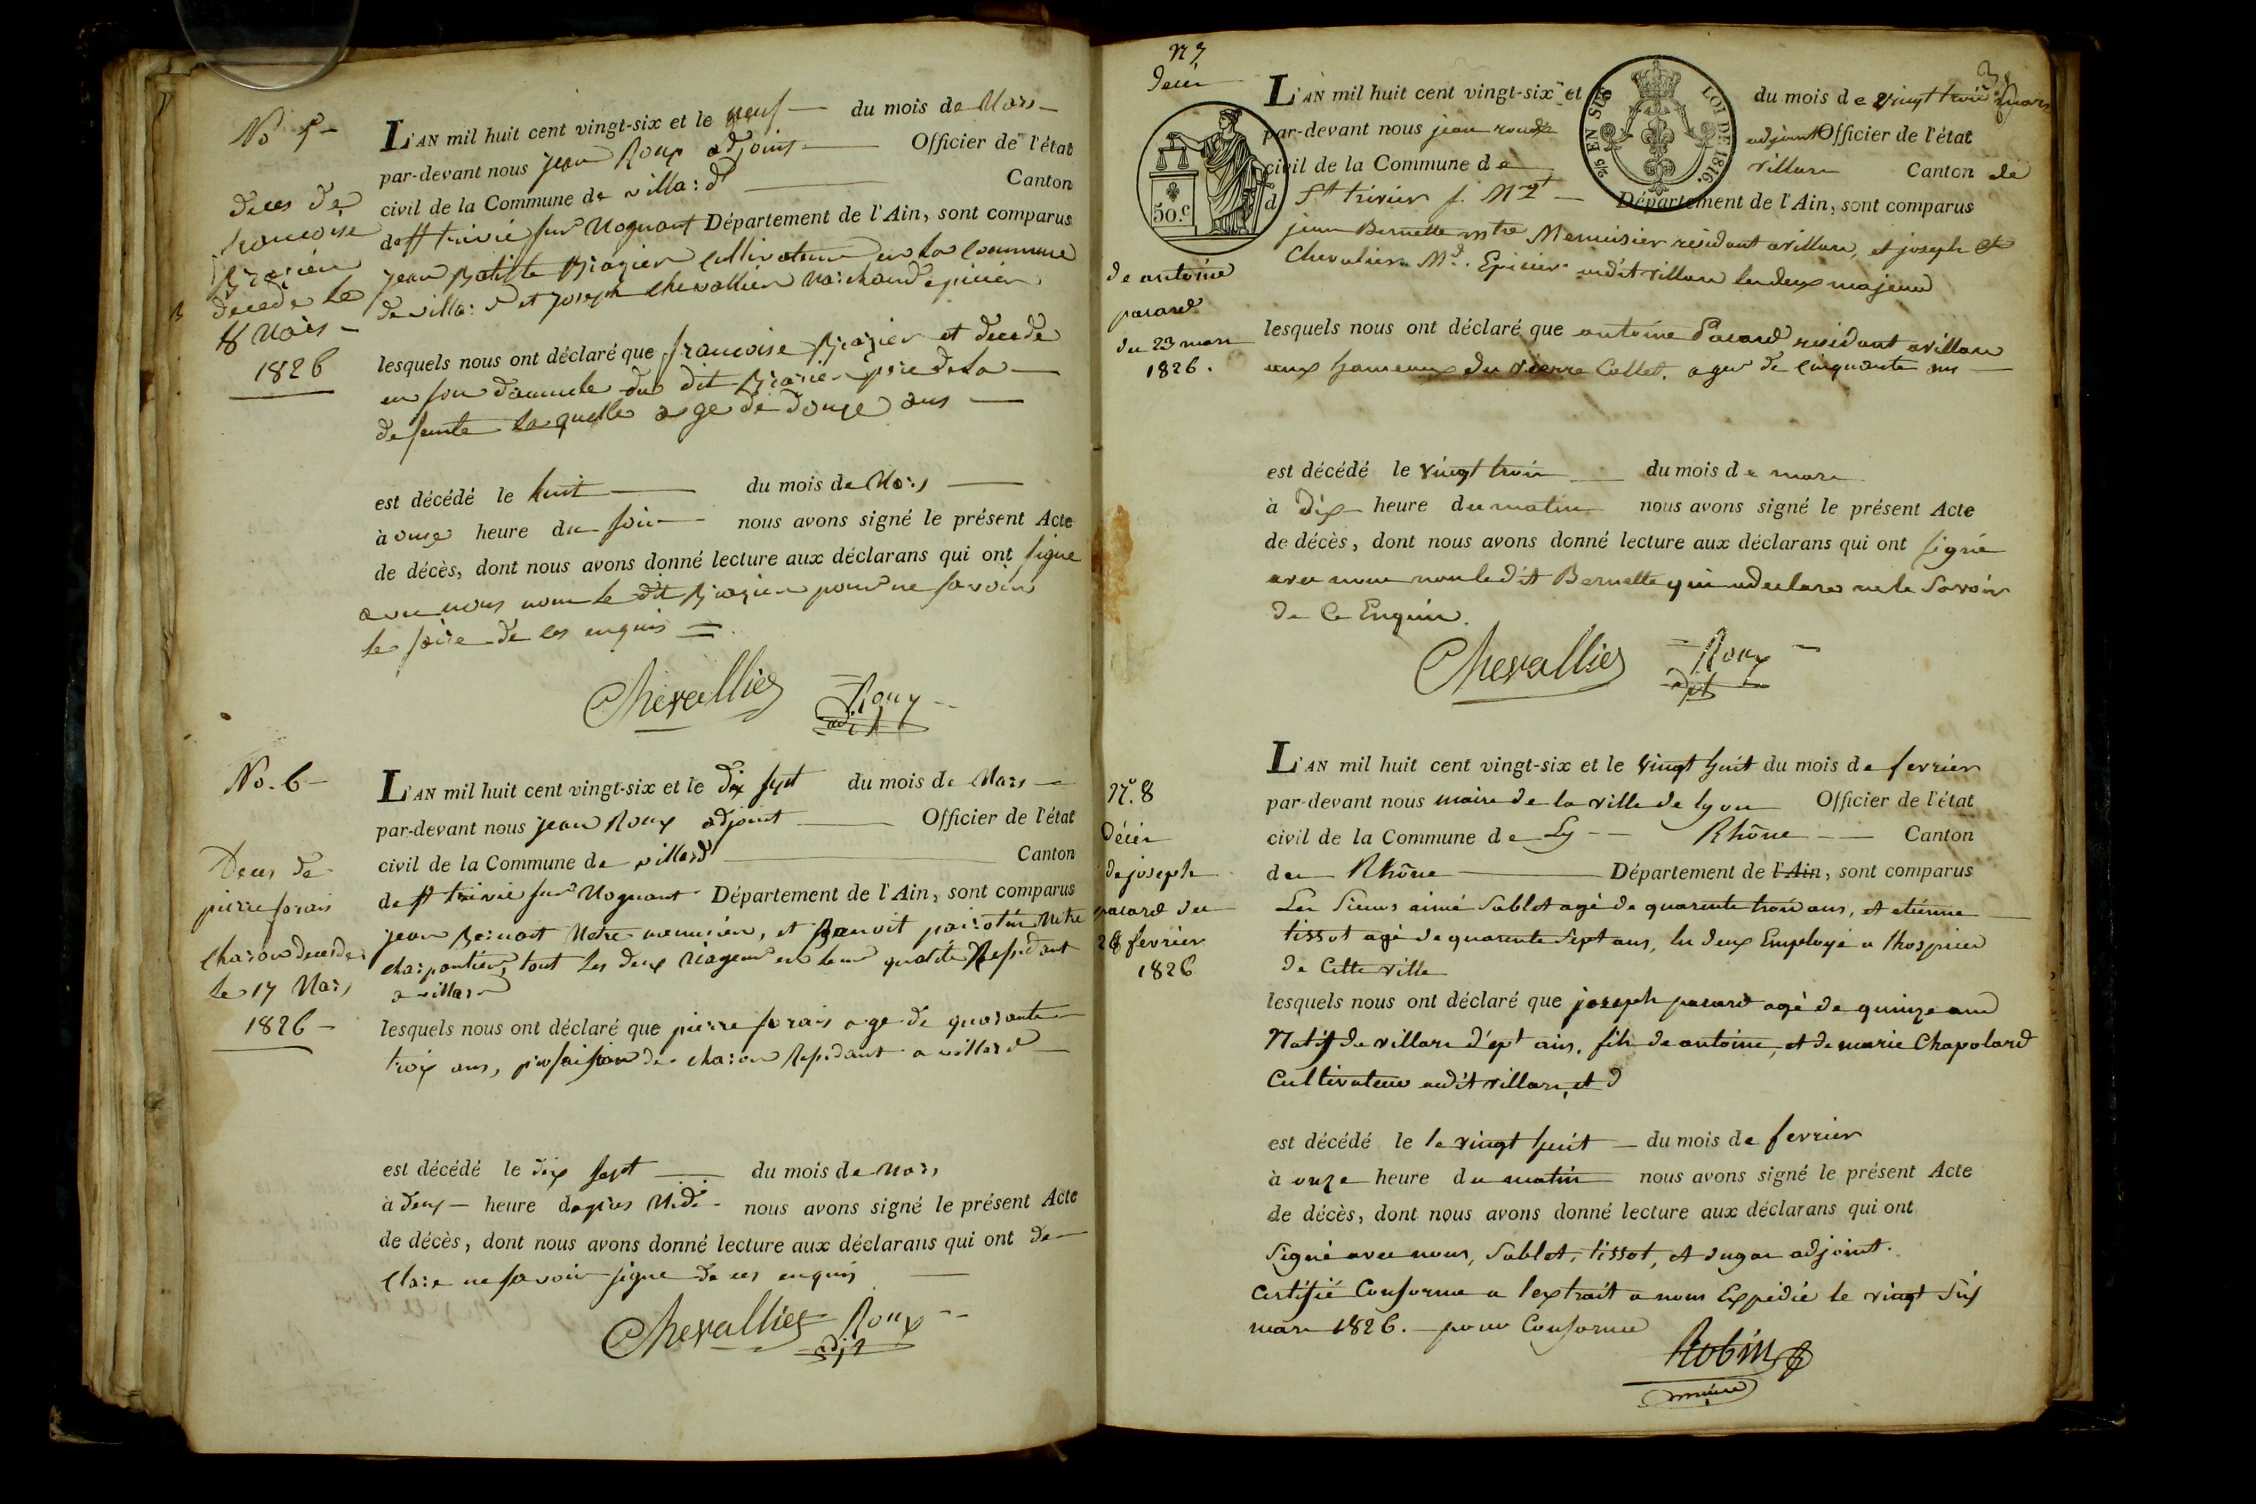 No 5
deces de
francoise
Brazier
decede le
8 Mars
1826
L'AN mil huit cent vingt-six et le neuf du mois de Mars
par-devant nous jean Roux adjoint Officier de l'état
civil de la Commune de villard Canton
de st trivié sur Mognant Département de l'Ain, sont comparus
jean Batiste Brazier Cultivateur en la Commune
de villard et joseph chevallier Marchand épicier
lesquels nous ont déclaré que francoise Brazier et decede
en son domicile du dit Brazier père de la
defunte la quelle age de douze ans
est décédé le huit du mois de Mars
à onze heure du soir nous avons signé le présent Acte
de décès, dont nous avons donné lecture aux déclarans qui ont signe
avec nous nom le dit Brazier pour ne savoir
le faire de ces enquis
Chevallier Roux
adjt
No. 6
Deces de
pierre forais
charon decede
le 17 Mars
1826
L'AN mil huit cent vingt-six et le dix sept du mois de Mars
par-devant nous jean Roux adjoint Officier de l'état
civil de la Commune de villard Canton
de st trivié sur Mognant Département de l'Ain, sont comparus
jean Bernart Metre menusier, et Benoit Metre
charpantier, tout les deux Mageur en leur qualité Residant
a villard
lesquels nous ont déclaré que pierre forais age de quarante
troix ans, profaision de charon Residant a villard
est décédé le dix sept du mois de Mars
à deux heure dapres Midi nous avons signé le présent Acte
de décès, dont nous avons donné lecture aux déclarans qui ont de
clare ne savoir signe de ces enquis
Chevallier Roux
adjt
N 7
Décès
de antoine
pacard
du 23 mars
1826.
L'AN mil huit cent vingt-six et du mois de vingt trois mars
par-devant nous jean roux adjoint Officier de l'état
civil de la Commune de villars Canton de
St trivier s. Mgt Département de l'Ain, sont comparus
jean Bernette mtre Menuisier résidant a villars, et joseph
Chevalier Md. Epicier audit villars les deux majeurs
lesquels nous ont déclaré que antoine Pacard residant a villars
aux hameaux du Vierre Collet. agé de cinquante ans
est décédé le vingt trois du mois de mars
à dix heure du matin nous avons signé le présent Acte
de décès, dont nous avons donné lecture aux déclarans qui ont signé
avec nous non le dit Bernette qui a declare ne le Savoir
de Ce Enquis.
Chevallier Roux
adjt
50.c
2/5 EN SUS LOI DE 1816.
N.º 8
Décès
de joseph
pacard du
28 fevrier
1826
L'AN mil huit cent vingt-six et le vingt huit du mois de fevrier
par-devant nous maire de la ville de lyon Officier de l'état
civil de la Commune de Ly Rhône Canton
du Rhône Département de l'Ain, sont comparus
Les Sieurs aimé Sablet agé de quarente trois ans, et etienne
tissot agé de quarente Sept ans, les deux Employé a lhospice
de Cette ville
lesquels nous ont déclaré que joseph pacard agé de quinze ans
Natif de villars d'ept ain, fils de antoine, et de marie Chapolard
Cultivateur audit villars, et d
est décédé le le vingt huit du mois de fevrier
à onze heure du matin nous avons signé le présent Acte
de décès, dont nous avons donné lecture aux déclarans qui ont
Signé avec nous, Sablet, tissot, et dugas adjoint.
Certifié Conforme a lextrait a nous Expédié le vingt Six
mars 1826. pour Conforme
Robin
maire